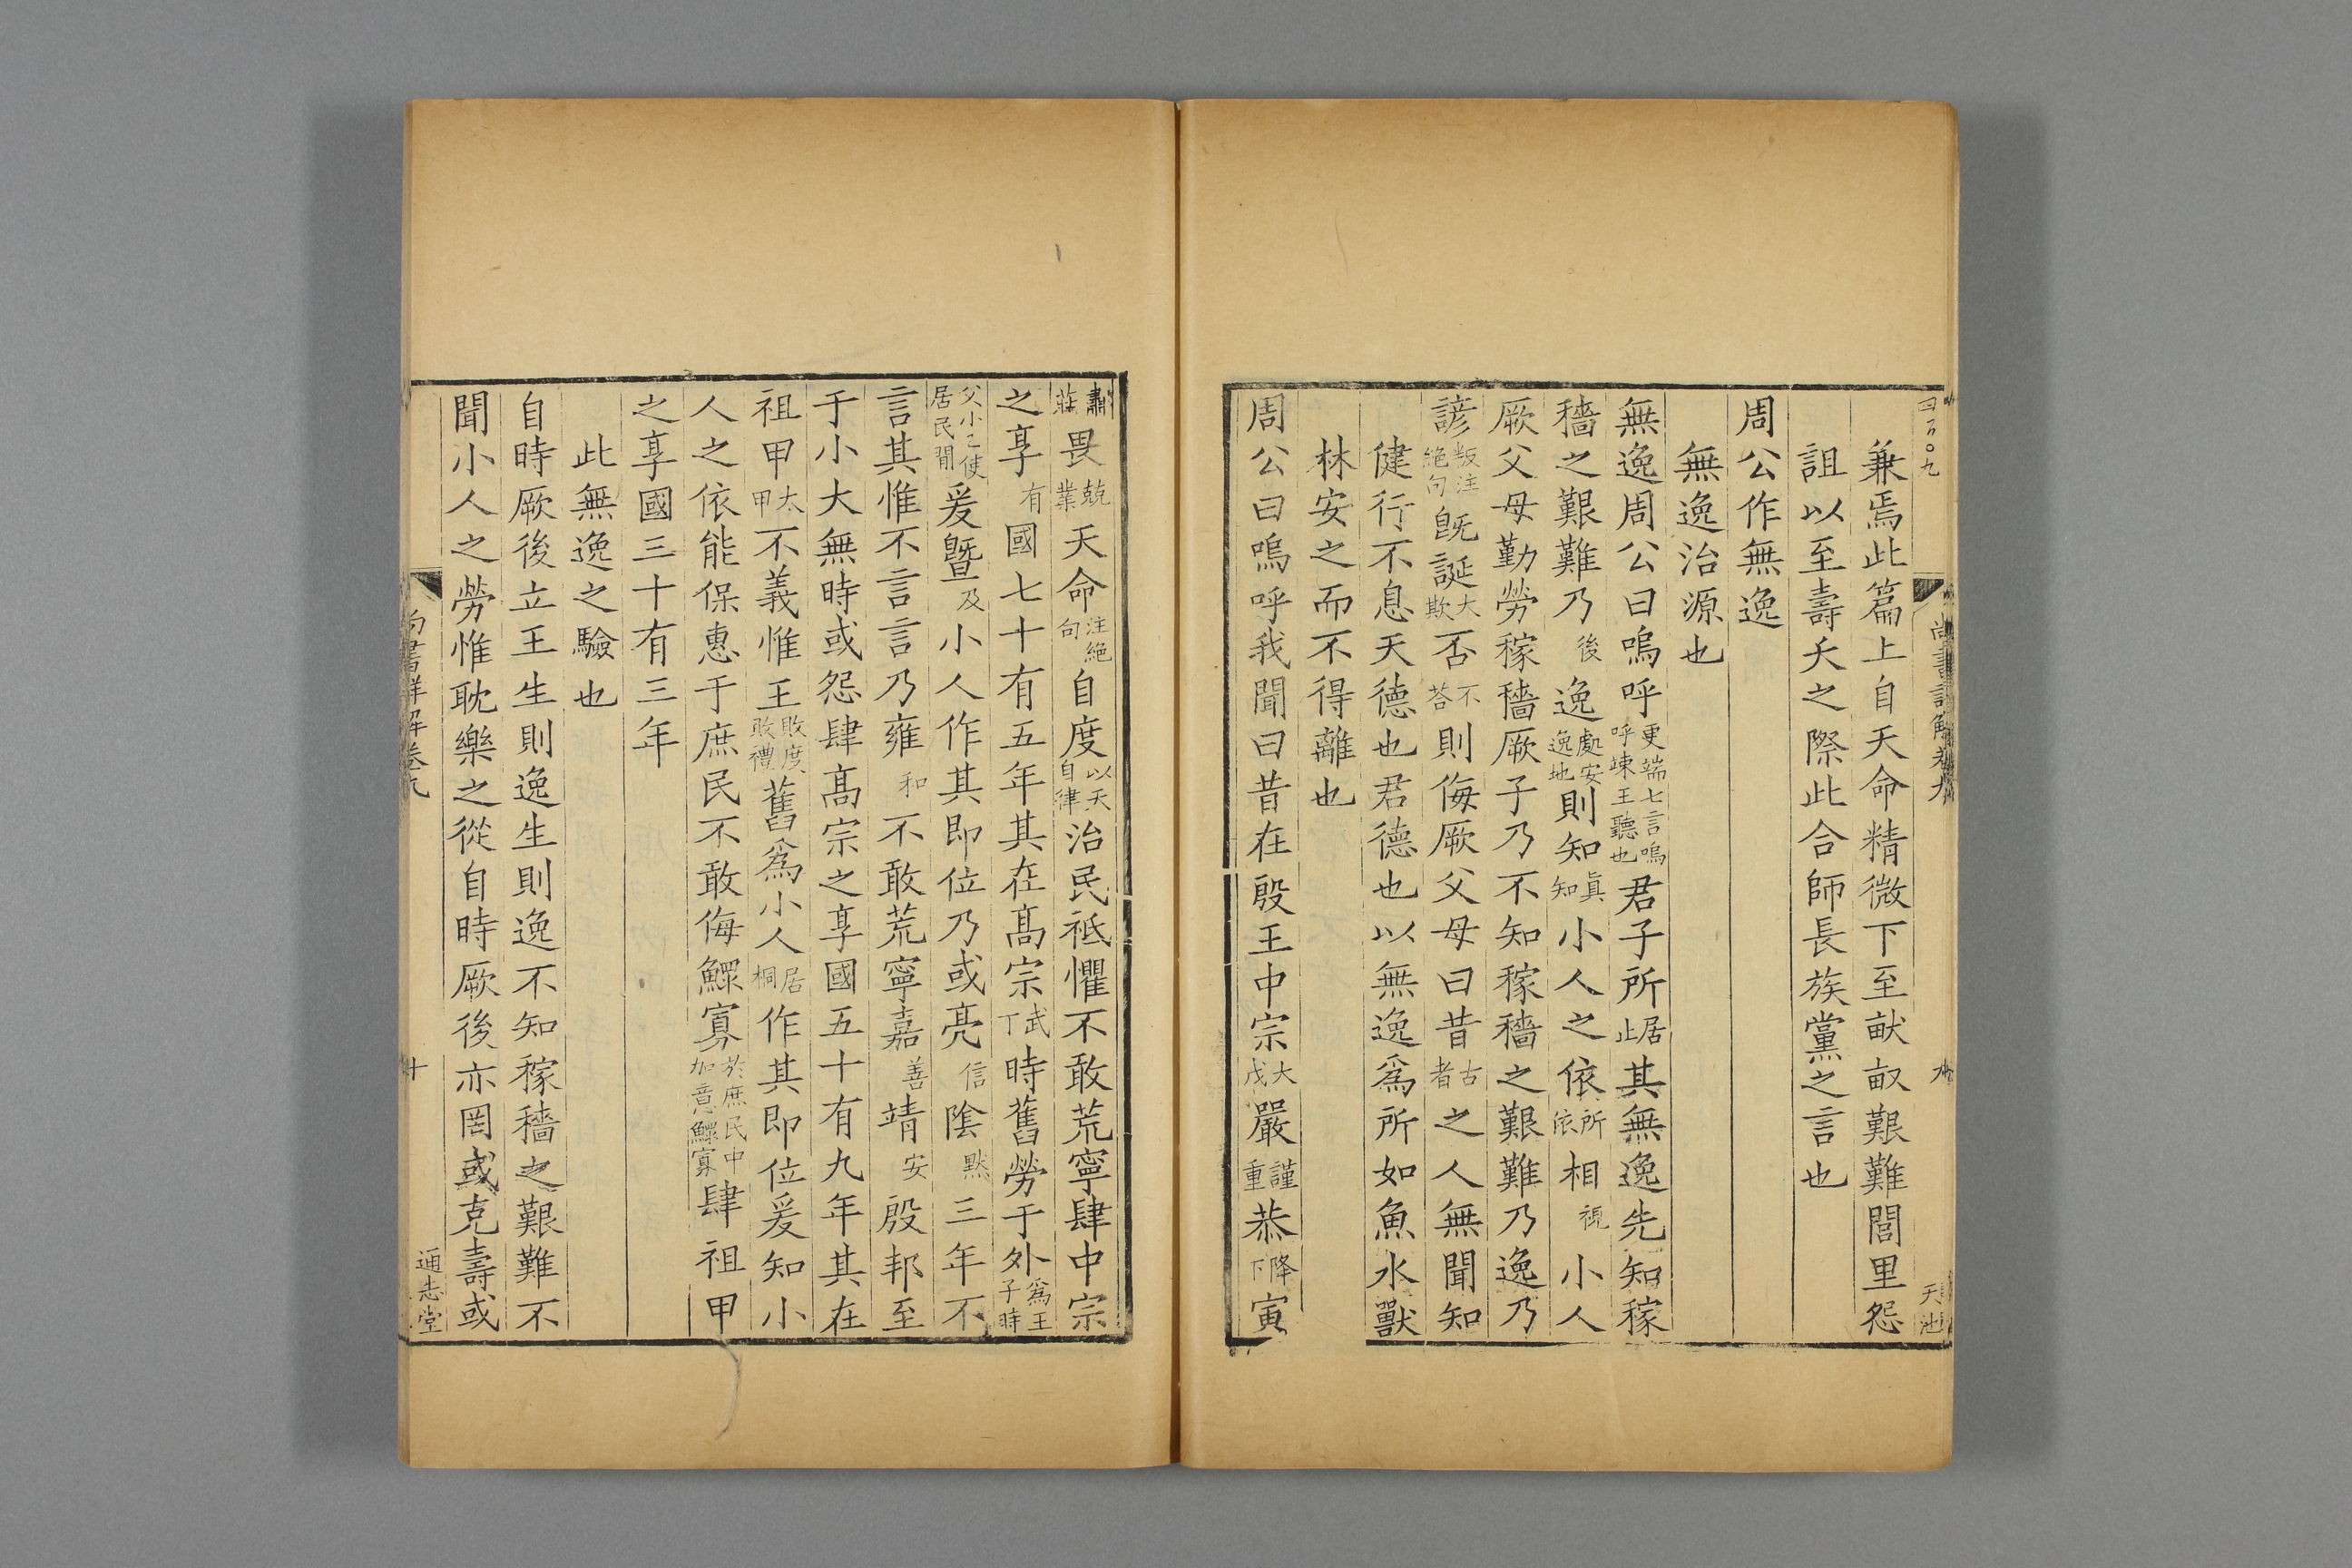 兼焉此篇上自天命精微下至畎畝艱難閭里怨
詛以至壽夭之際此合師長族黨之言也
周公作無逸
無逸治源也
無逸周公曰嗚呼更端七言嗚呼竦王聽也君子所居止其無逸先知稼
穡之艱難乃後逸處安逸地則知眞知小人之依所依相視小人
厥父母勤勞稼穡厥子乃不知稼穡之艱難乃逸乃
諺叛注絕句旣誕大欺否不荅則侮厥父母曰昔古者之人無聞知
健行不息天德也君德也以無逸爲所如魚水獸
林安之而不得離也
周公曰嗚呼我聞曰昔在殷王中宗大戊嚴謹重恭降下寅
肅莊畏兢業天命注絕句自度以天自律治民祗懼不敢荒寧肆中宗
之享有國七十有五年其在高宗武丁時舊勞于外爲王子時
父小乙使居民間爰曁及小人作其即位乃或亮信陰默三年不
言其惟不言言乃雍和不敢荒寧嘉善靖安殷邦至
于小大無時或怨肆高宗之享國五十有九年其在
祖甲太甲不義惟王敗度敗禮舊爲小人居桐作其即位爰知小
人之依能保惠于庶民不敢侮鰥寡於庶民中加意鰥寡肆祖甲
之享國三十有三年
此無逸之驗也
自時厥後立王生則逸生則逸不知稼穡之艱難不
聞小人之勞惟耽樂之從自時厥後亦罔或克壽或
尚書詳解卷九
十
通志堂